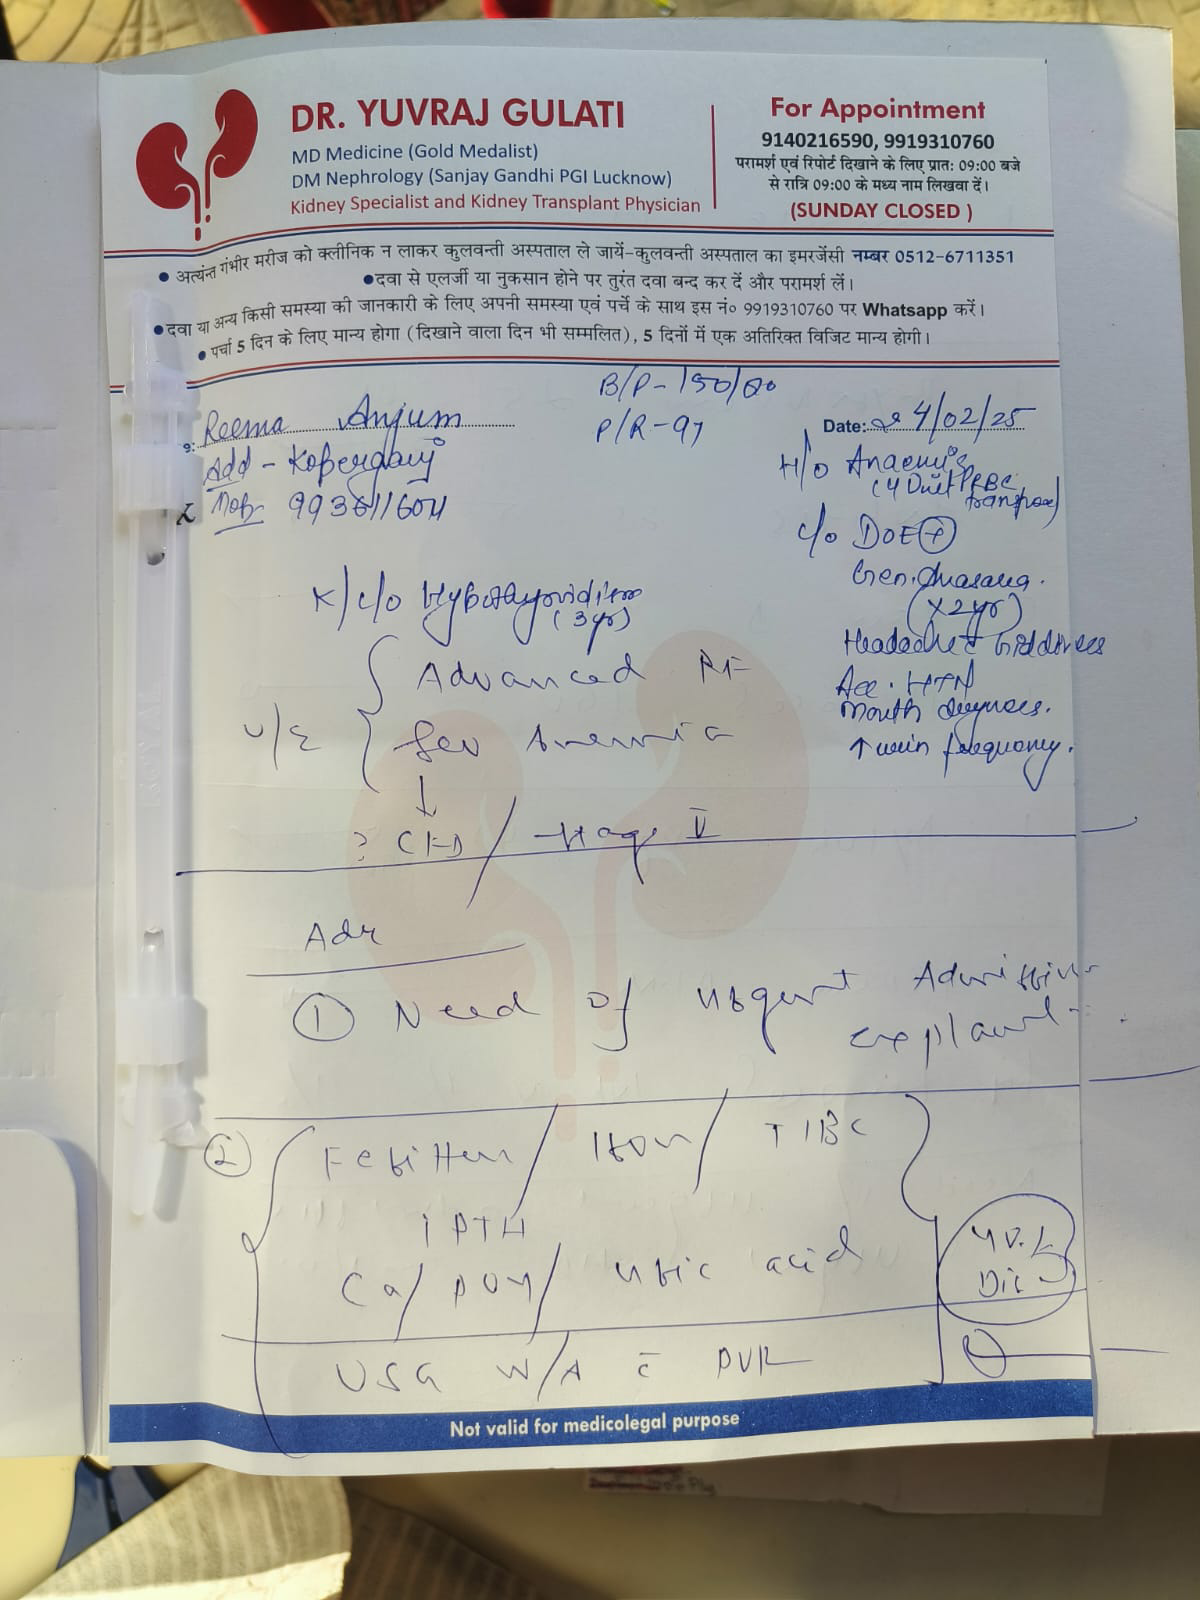 DR. YUVRAJ GULATI
MD Medicine (Gold Medalist)
DM Nephrology (Sanjay Gandhi PGI Lucknow)
Kidney Specialist and Kidney Transplant Physician
For Appointment
9140216590, 9919310760
परामर्श एवं रिपोर्ट दिखाने के लिए प्रात: 09:00 बजे
से रात्रि 09:00 के मध्य नाम लिखवा दें।
(SUNDAY CLOSED )
• अत्यंन्त गंभीर मरीज को क्लीनिक न लाकर कुलवन्ती अस्पताल ले जायें-कुलवन्ती अस्पताल का इमरजेंसी नम्बर 0512-6711351
•दवा से एलर्जी या नुकसान होने पर तुरंत दवा बन्द कर दें और परामर्श लें।
•दवा या अन्य किसी समस्या की जानकारी के लिए अपनी समस्या एवं पर्चे के साथ इस नं० 9919310760 पर Whatsapp करें।
• पर्चा 5 दिन के लिए मान्य होगा (दिखाने वाला दिन भी सम्मलित), 5 दिनों में एक अतिरिक्त विजिट मान्य होगी।
B/P-150/
P/R-97
Reema Anjum
Date: 4/02/25
Add -
Mob
H/o
c/o DOE +
(x2yr)
K/c/o
(3yr)
Advanced RF
Sev Anemia
↓
? CKD / Stage V
Acc. HTN
Mouth
↑ frequency.
Adv
① Need of urgent Admission
explained
② Ferritin / Iron / TIBC
iPTH
Ca / PO4 / Uric acid
USG W/A c̄ PVR
Not valid for medicolegal purpose